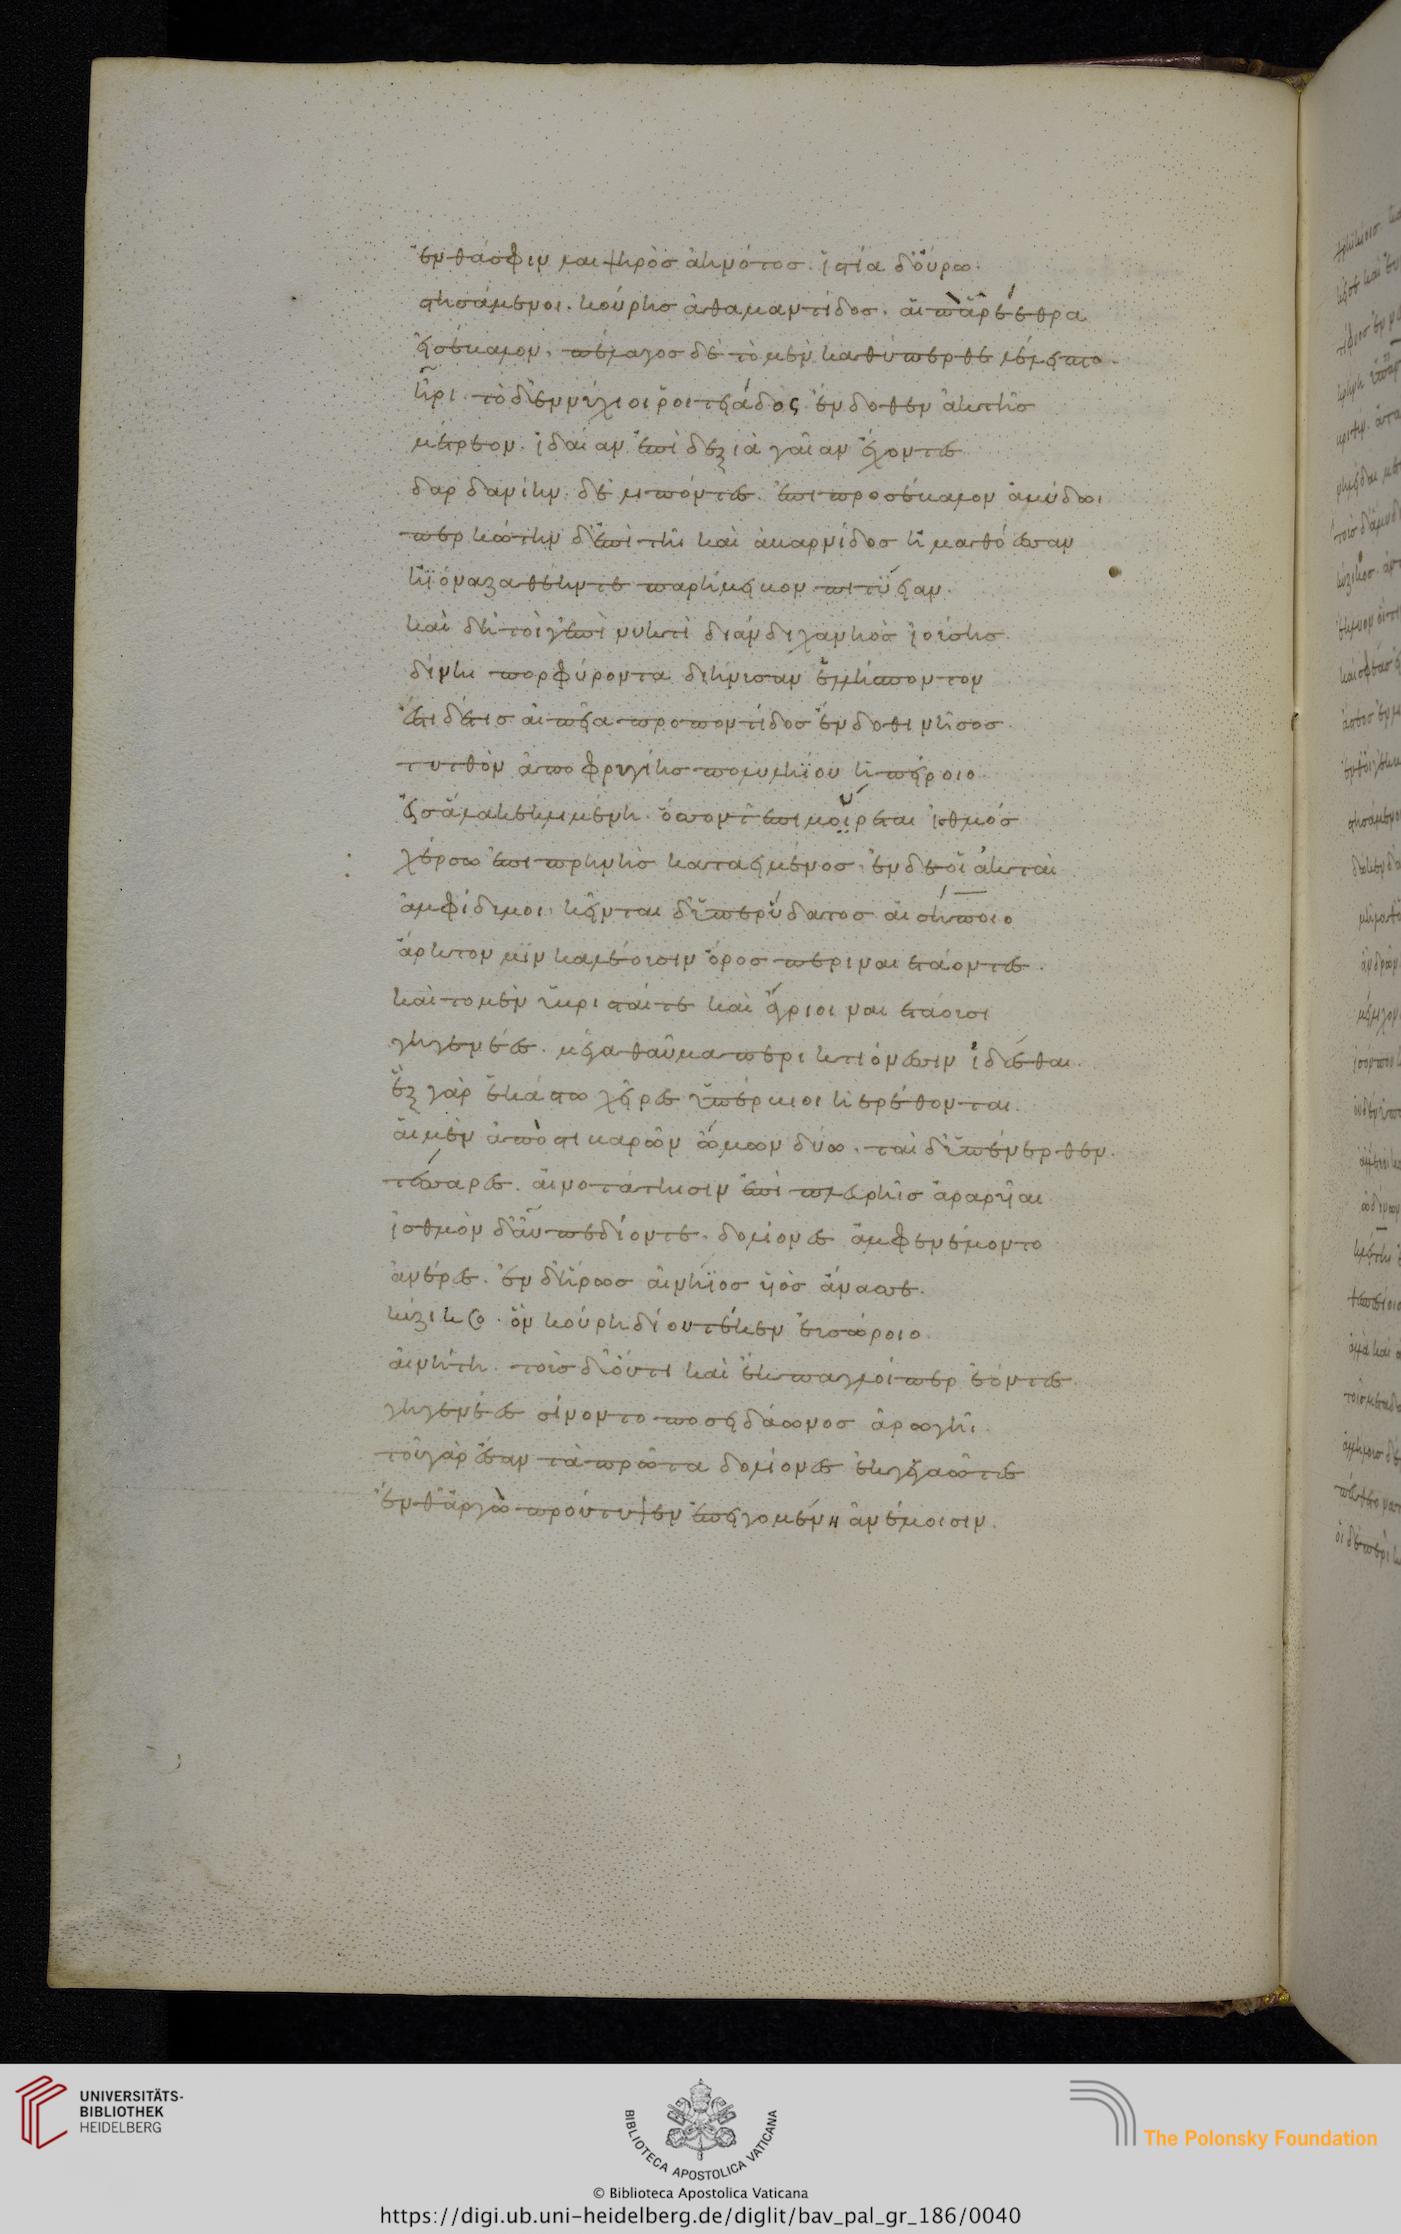 ἔνθά σφιν λαιψηρὸς ἄη νότος. ἱστία δ' οὔρω.
στησάμενοι. κούρης ἀθαμαντίδος. αἰπὰ ῥέεθρα
εἰσέβαλον. πέλαγος δὲ τὸ μὲν καθύπερθε λέλειπτο.
ἦρι. τὸ δ' ἐννύχιοι ῥοιτειάδος ἔνδοθεν ἀκτῆς
μέτρεον. ἰδαίαν ἐπὶ δεξιὰ γαῖαν ἔχοντες
δαρδανίην. δὲ λιπόντες. ἐπιπροσέβαλον ἀβύδωι
περκώτην δ' ἐπὶ τῆι καὶ ἀβαρνίδος ἠμαθόεσσαν
ἠϊόνα ζαθέην τε παρήμειβον πιτύειαν.
καὶ δὴ τοίγ' ἐπὶ νυκτὶ διάνδιχα νηὸς ἰούσης
δίνη πορφύροντα διήνυσαν ἑλλήσποντον
ἔστι δέ τις αἰπεῖα προποντίδος ἔνδοθι νῆσος.
τυτθὸν ἀπο φρυγίης πολυληΐου ἠπείροιο
εἰς ἅλα κεκλιμένη. ὅσον τ' ἐπιμύρεται ἰσθμός
χέρσω ἐπιπρηνὴς καταειμένος. ἐν δε οἵ ἀκταὶ
ἀμφίδυμοι. κεῖνται δ' ὑπερ ὕδατος αἰσήποιο
ἄρκτον μϊν καλέουσιν ὄρος περιναιετάοντες.
καὶ το μὲν ὑβρισταί τε καὶ ἄγριοι ναιετάουσι
γηγενέες. μέγα θαῦμα περικτιόνεσσιν ἰδέσθαι.
ἓξ γὰρ ἑκάστω χεῖρες ὑπέρβιοι ἠερέθονται.
αἱ μὲν ἀπὸ στιβαρῶν ὤμων δύο. ταὶ δ' ὑπένερθεν.
τέσσαρες. αἰνοτάτηισιν ἐπὶ πλευρῆις ἀραρυῖαι
ἰσθμὸν δ' αὖ πεδίον τε. δολίονες ἀμφενέμοντο
ἀνέρες. ἐν δ' ἥρως αἰνήϊος υἱὸς ἄνασσε.
κύζικος. ὃν κούρη δίου τέκεν εὐσώροιο.
αἰνήτη. τοὺς δ' οὔτι καὶ ἔκπαγλοί περ ἐόντες.
γηγενέες σίνοντο ποσειδάωνος ἀρωγῆι.
τοῦ γὰρ ἔσαν τὰ πρῶτα δολίονες ἐκγεγαῶτες
ἔνθ' ἀργὼ προὔτυψεν ἐπειγομένη ἀνέμοισιν.
UNIVERSITÄTS-
BIBLIOTHEK
HEIDELBERG
BIBLIOTECA APOSTOLICA VATICANA
© Biblioteca Apostolica Vaticana
The Polonsky Foundation
https://digi.ub.uni-heidelberg.de/diglit/bav_pal_gr_186/0040